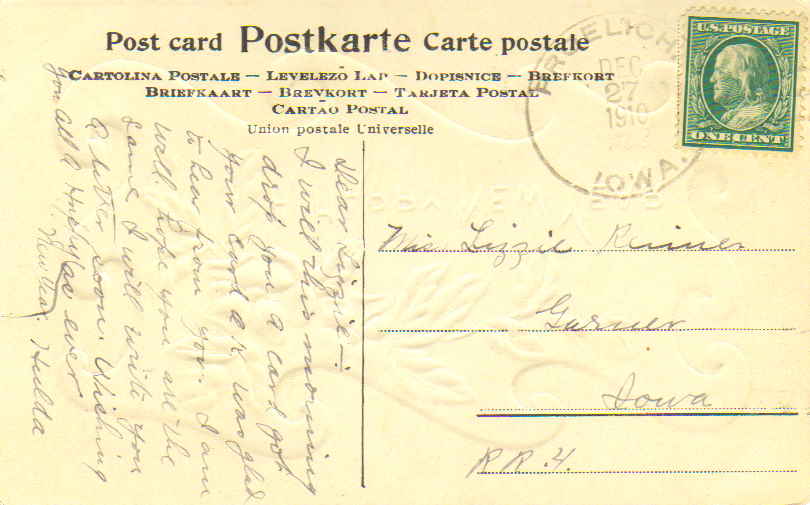 Post card Postkarte Carte postale
CARTOLINA POSTALE — LEVELEZŐ LAP — DOPISNICE — BREFKORT
BRIEFKAART — BREVKORT — TARJETA POSTAL
CARTÃO POSTAL
Union postale Universelle
FROELICH
DEC
27
1910
IOWA.
U.S. POSTAGE
ONE CENT
Dear Lizzie—:
I will this morning
drop you a card got
your card O.K. was glad
to hear from you. I am
well hope you are the
same I will write you
a letter soon. Wishing
you all a
New Year.
as ever
Hulda
Miss Lizzie
Garner
Iowa
R.R.4.